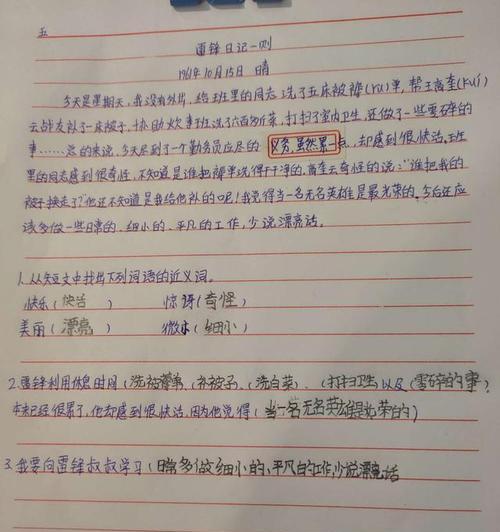 五
雷锋日记一则
1961年10月15日 晴
今天是星期天,我没有外出,给班里的同志洗了五床被褥(rù)单,帮王高奎(kuí)
云战友补了一床被子,协助炊事班洗了六百多斤菜,打扫了室内卫生,还做了一些零碎的
事……总的来说,今天尽到了一个勤务员应尽的义务,虽然累一点,却感到很快活。班
里的同志感到很奇怪,不知道是谁把褥单洗得干干净的。高奎云奇怪的说:“谁把我的
被子换走了?”他还不知道是我给他补的呢!我觉得当一名无名英雄是最光荣的。今后还应
该多做一些日常的,细小的,平凡的工作,少说漂亮话。
1.从短文中找出下列词语的近义词。
快乐(快活) 惊讶(奇怪)
美丽(漂亮) 微小(细小)
2.雷锋利用休息时间(洗被褥单)、(补被子)、(洗白菜)、(打扫卫生)以及(零碎的事)
本来已经很累了,他却感到很快活,因为他觉得(当一名无名英雄是光荣的)
3.我要向雷锋叔叔学习(日常多做细小的、平凡的工作,少说漂亮话